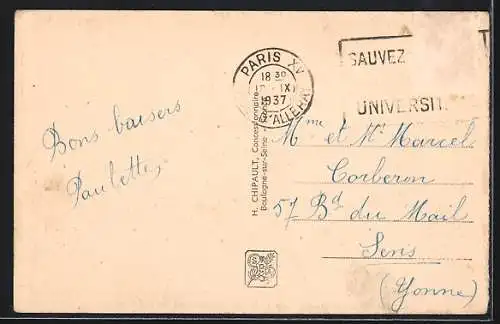 Bons baisers
Paulette,
PARIS XV
18 30
IX
1937
D'ALLERAY
SAUVEZ
UNIVERSIT
H. CHIPAULT, Concessionnaire
Boulogne-sur-Seine
Mme et Mr Marcel
Corberon
57 Bd du Mail
Sens
(Yonne)